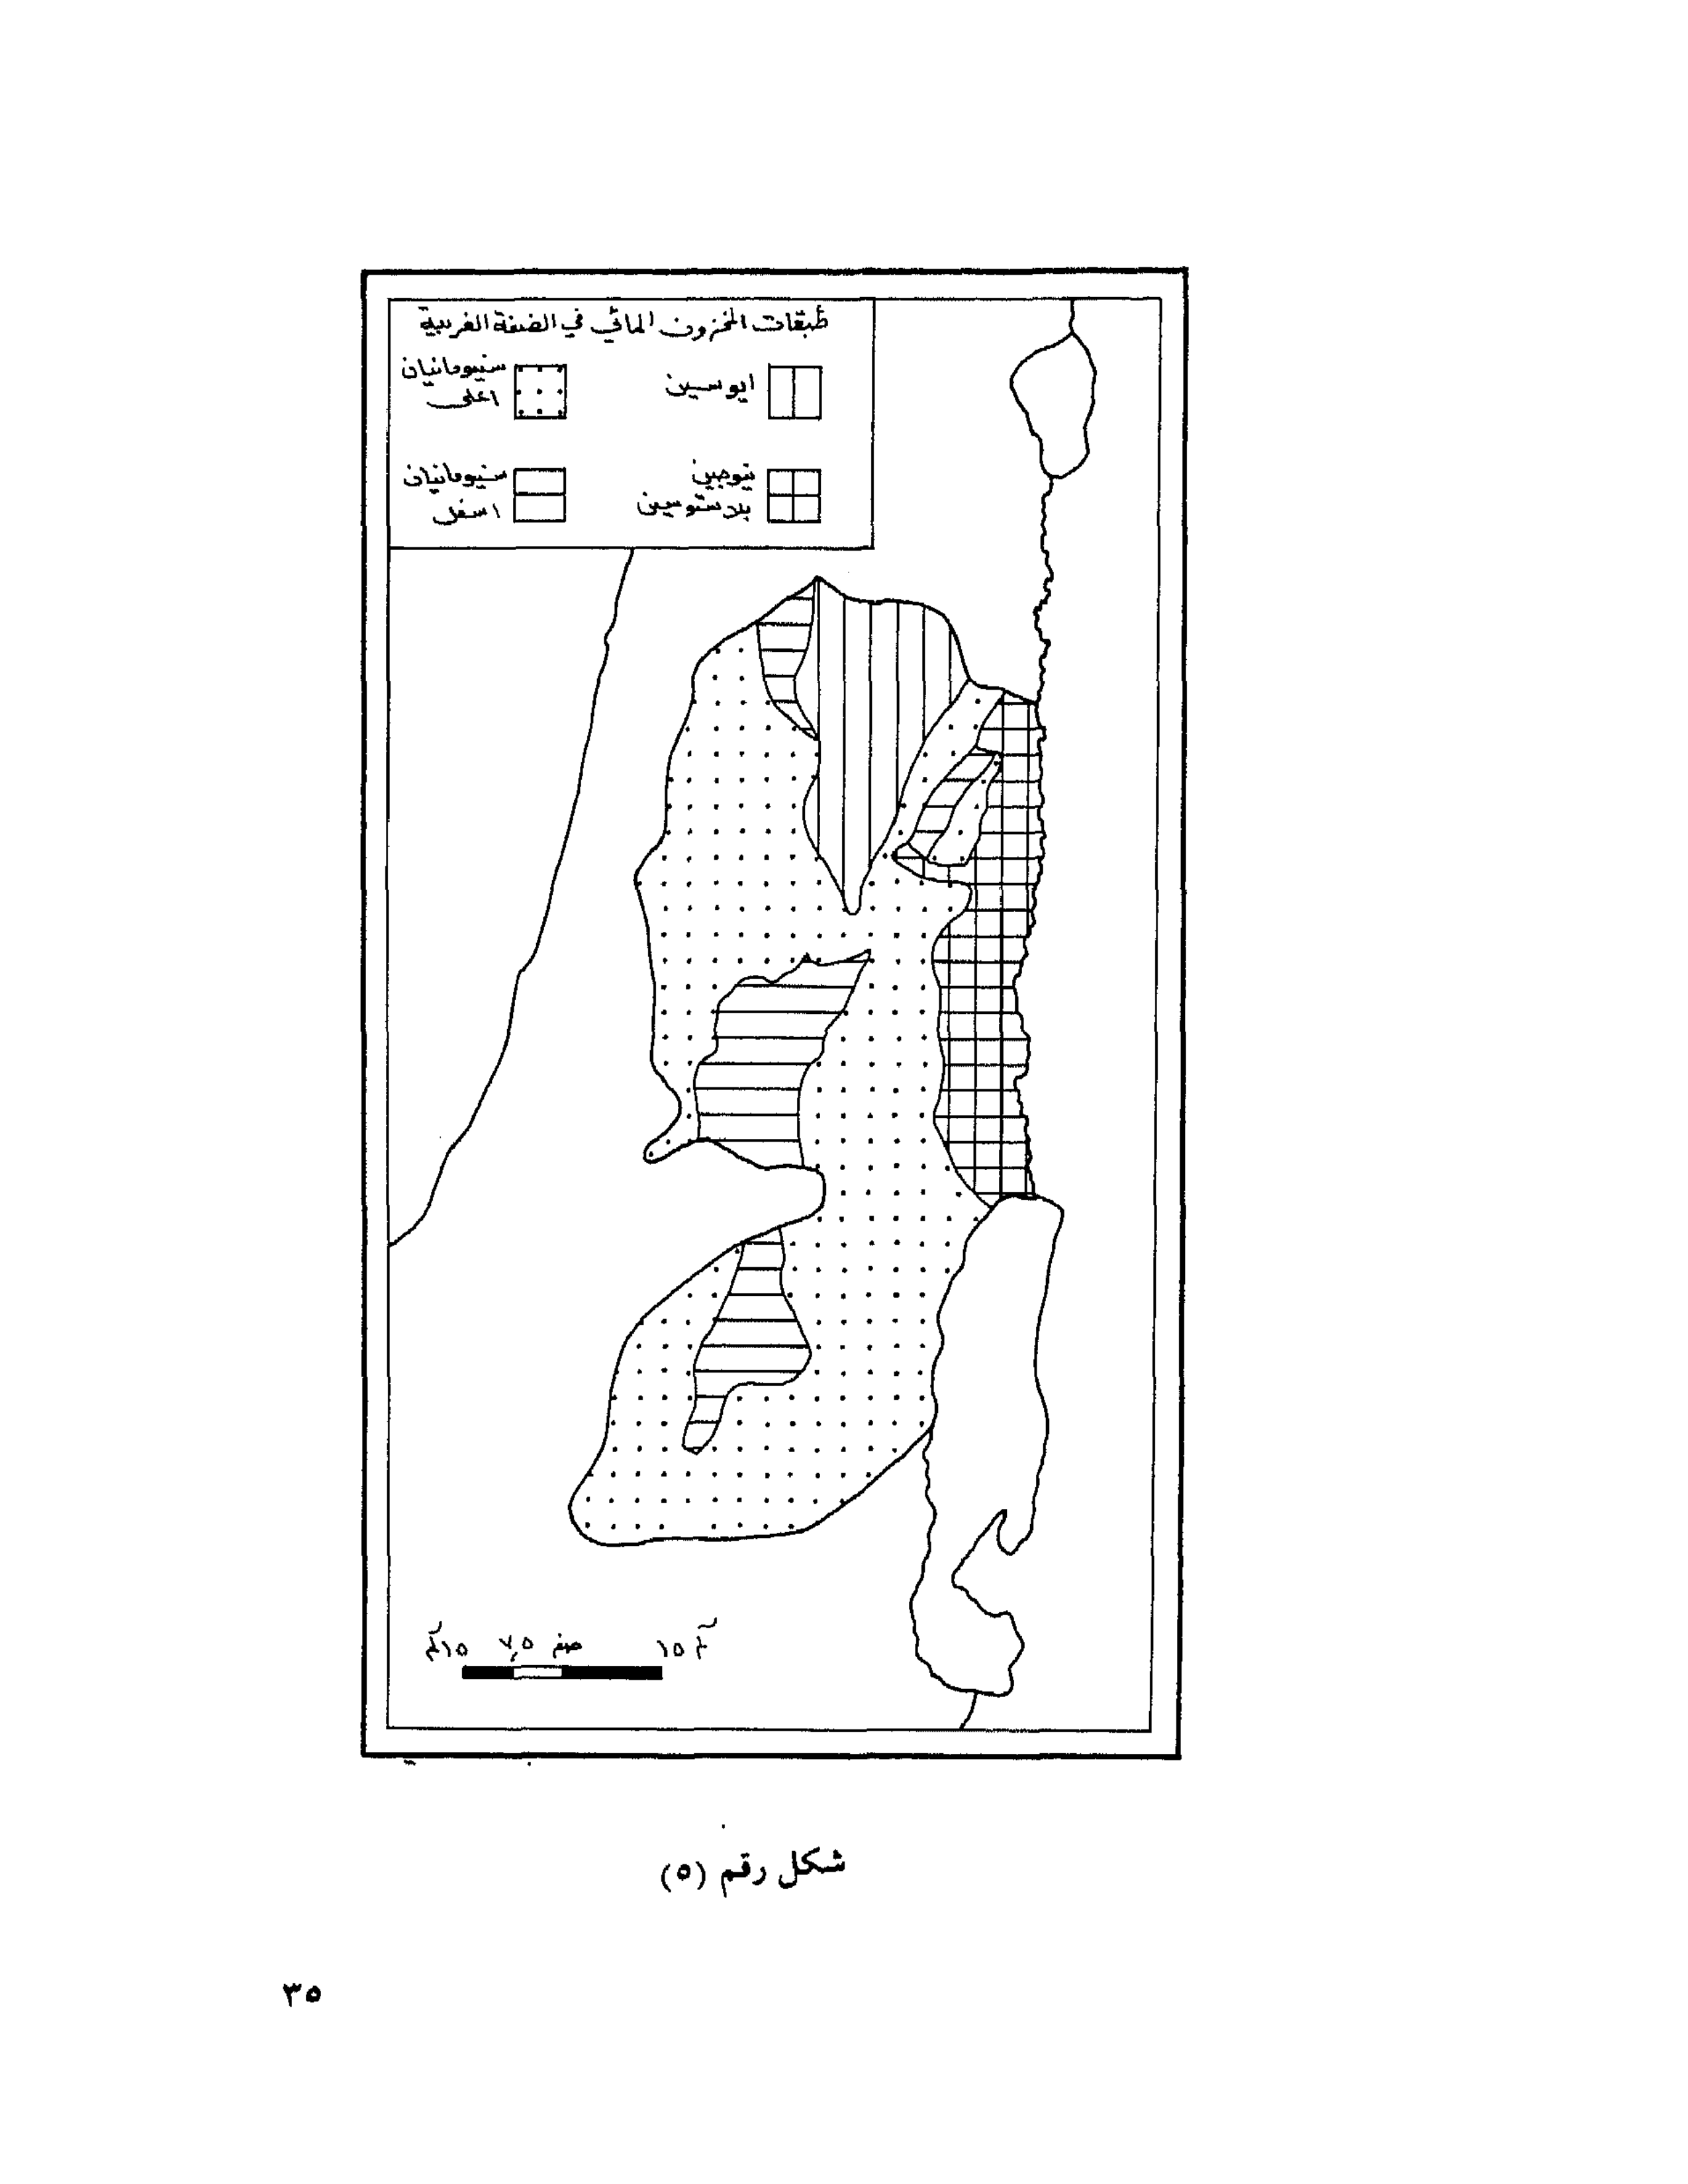 طبقات المخزون المائي في الضفة الغربية
ايوسين
سنيومانيان
اعلى
نيوجين
بلاستوسين
سنيومانيان
اسفل
١٥ كم
صفر
٧,٥
١٥ كم
شكل رقم (٥)
٣٥